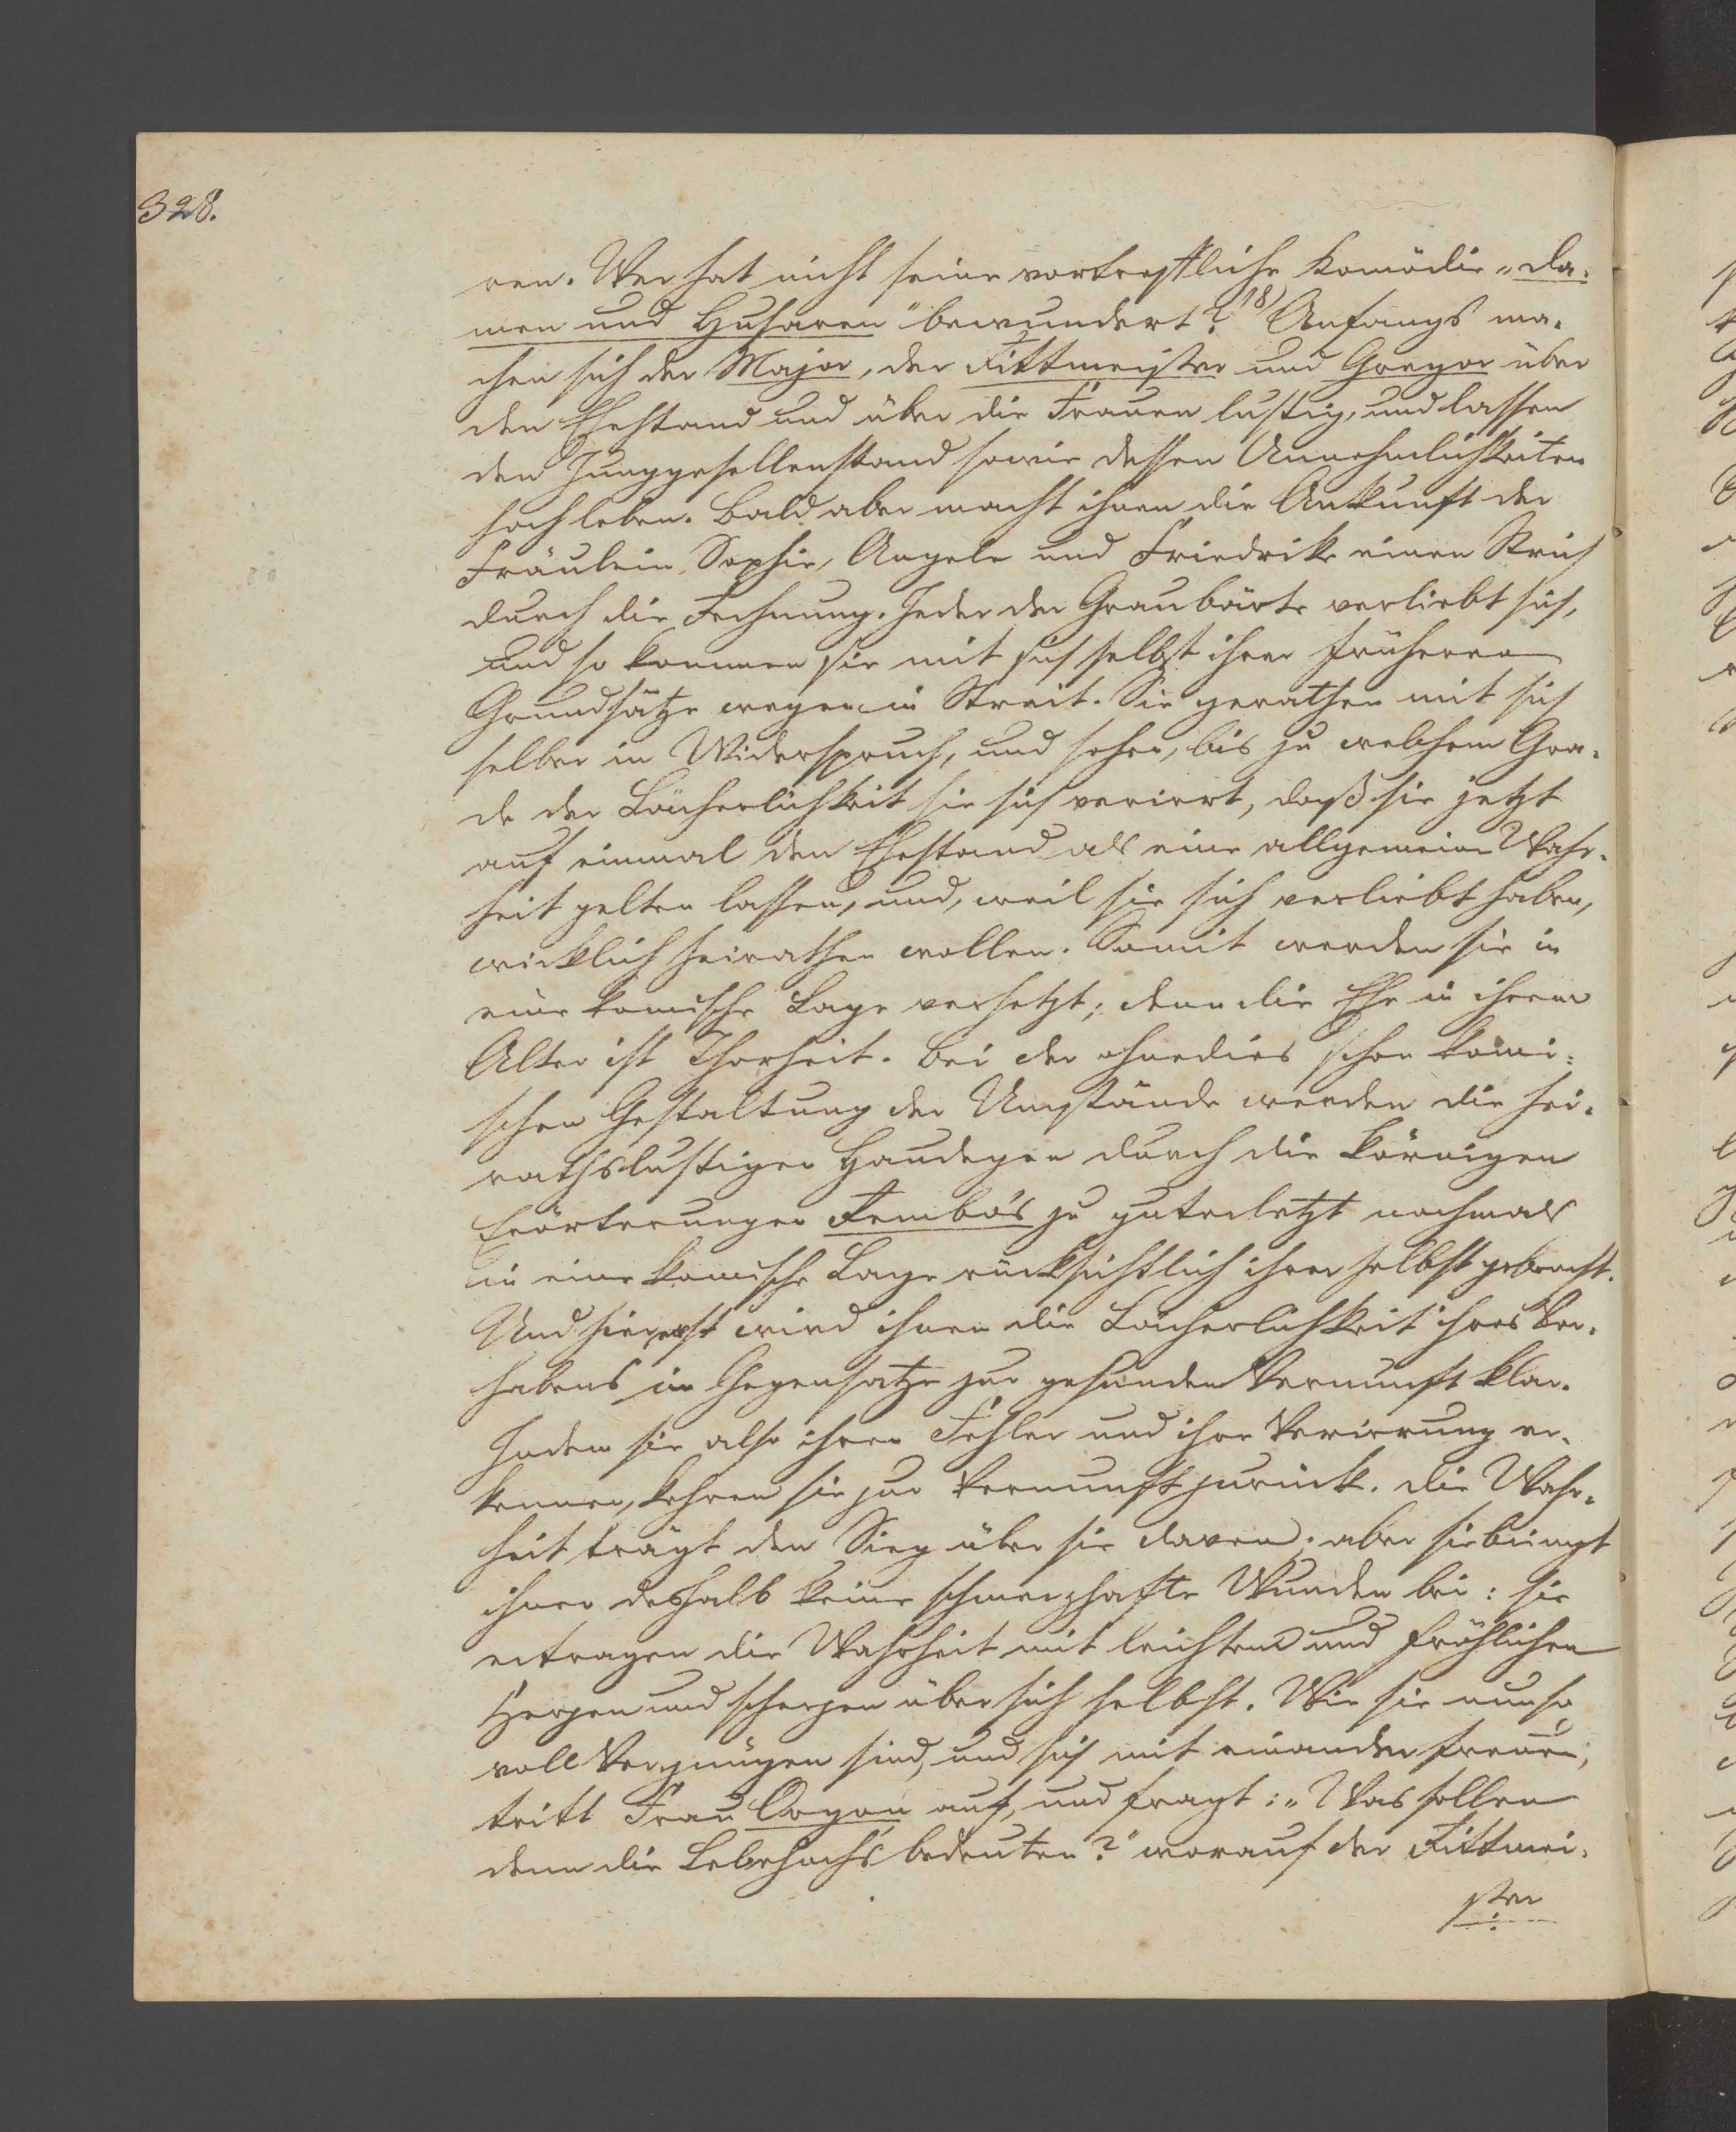 328.
ren. Wer hat nicht seine vortreffliche Komödie „Da-
men und Husaren" bewundert? 18) Anfangs ma-
chen sich der Major, der Rittmeister und Gregor über
den Ehestand und über die Frauen lustig, und lassen
den Junggesellenstand sowie dessen Annehmlichkeiten
hoch leben. Bald aber macht ihnen die Ankunft der
Fräulein Sophie, Angele und Friedrike einen Strich
durch die Rechnung. Jeder der Graubärte verliebt sich,
und so kommen sie mit sich selbst ihrer früheren
Grundsätze wegen in Streit. Sie gerathen mit sich
selber in Widerspruch, und sehen, bis zu welchem Gra-
de der Lächerlichkeit sie sich verirrt, daß sie jetzt
auf einmal den Ehestand als eine allgemeine Wahr-
heit gelten lassen, und, weil sie sich verliebt haben,
wirklich heirathen wollen. Somit werden sie in
eine komische Lage versetzt; denn die Ehe in ihrem
Alter ist Thorheit. Bei der ohnedies schon komi-
schen Gestaltung der Umstände werden die hei-
rathslustigen Haudegen durch die körnigen
Erörterungen Rembos zu guterletzt nochmals
in eine komische Lage rücksichtlich ihrer selbst gebracht.
Und hier erst wird ihnen die Lächerlichkeit ihres Vor-
habens im Gegensatze zur gesunden Vernunft klar.
Indem sie also ihren Fehler und ihre Verirrung er-
kennen, kehren sie zur Vernunft zurück. Die Wahr-
heit trägt den Sieg über sie davon; aber sie bringt
ihnen deshalb keine schmerzhafte Wunden bei: sie
ertragen die Wahrheit mit leichtem und fröhlichen
Herzen und scherzen über sich selbst. Wie sie nun so
voll Vergnügen sind, und sich mit einander freuen,
tritt Frau Orgon auf, und fragt: „Was sollen
denn die Lebehochs bedeuten?" worauf der Rittmei-
ster